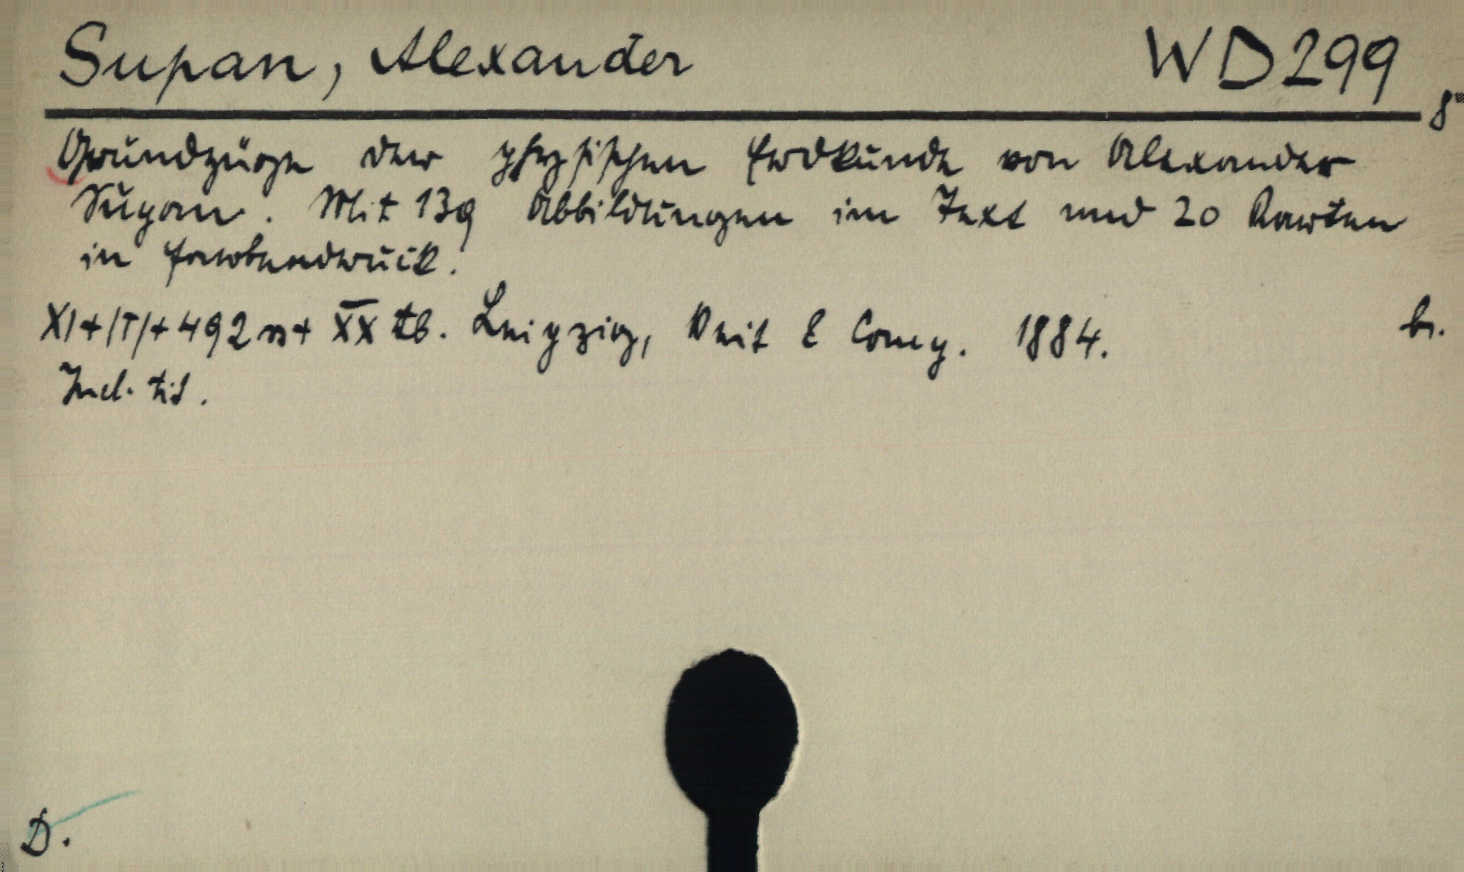 Supan, Alexander WD 299
8°
Grundzüge der physischen Erdkunde von Alexander
Supan. Mit 139 Abbildungen im Text und 20 Karten
in Farbendruck.
XI+/T/+492 s+ XX tb. Leipzig, Veit & Comp. 1884. br.
Incl. tit.
D.